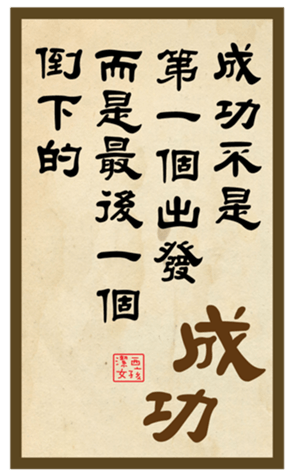 成功不是
第一個出發
而是最後一個
倒下的
成功